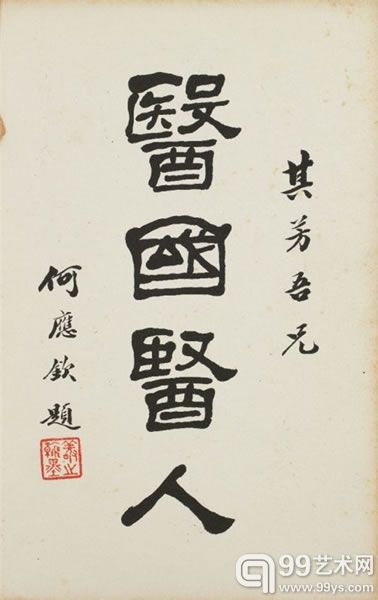 其芳吾兄
醫國醫人
何應欽題
敬之翰墨
99艺术网
www.99ys.com